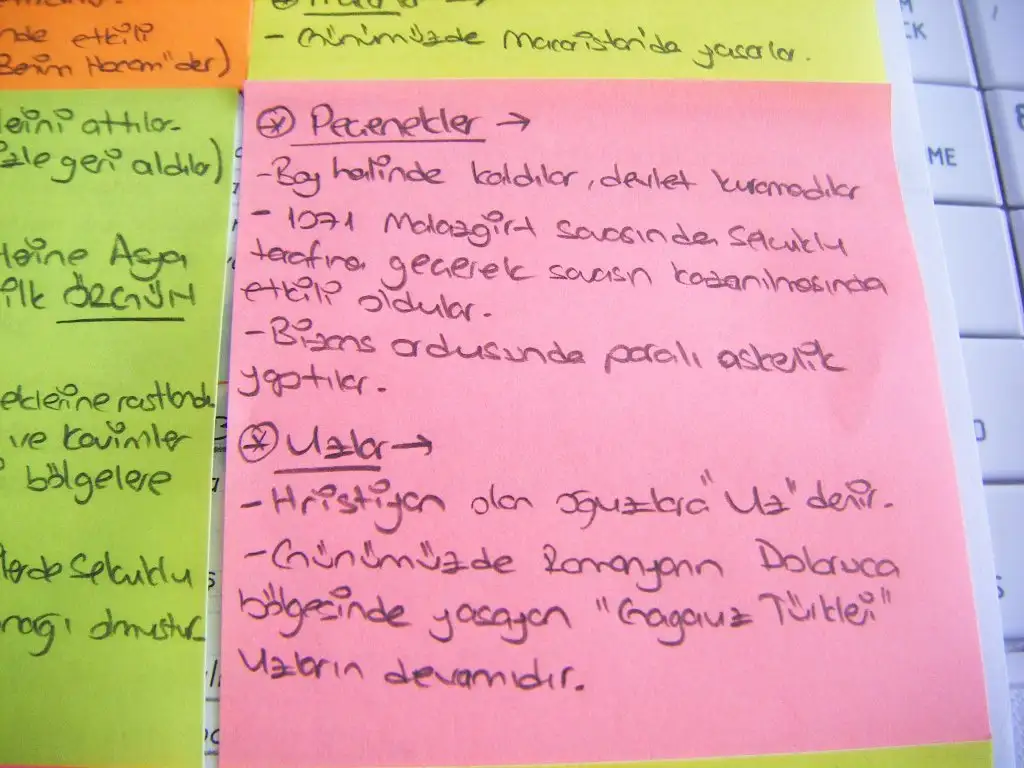 nde etkili
Benim Hocam'der)
- Günümüzde Macaristan'da yaşarlar.
lerini attılar.
izle geri aldılar)
lerine Asya
ilk ÖZGÜN
eklerine rastlandı.
ve kavimler
bölgelere
lerde Selçuklu
nağı olmuştur.
Peçenekler →
- Boy halinde kaldılar, devlet kuramadılar
- 1071 Malazgirt savaşında Selçuklu
tarafına geçerek savaşın kazanılmasında
etkili oldular.
- Bizans ordusunda paralı askerlik
yaptılar.
Uzlar →
- Hristiyan olan Oğuzlara "Uz" denir.
- Günümüzde Romanyanın Dobruca
bölgesinde yaşayan "Gagauz Türkleri"
Uzların devamıdır.
ME